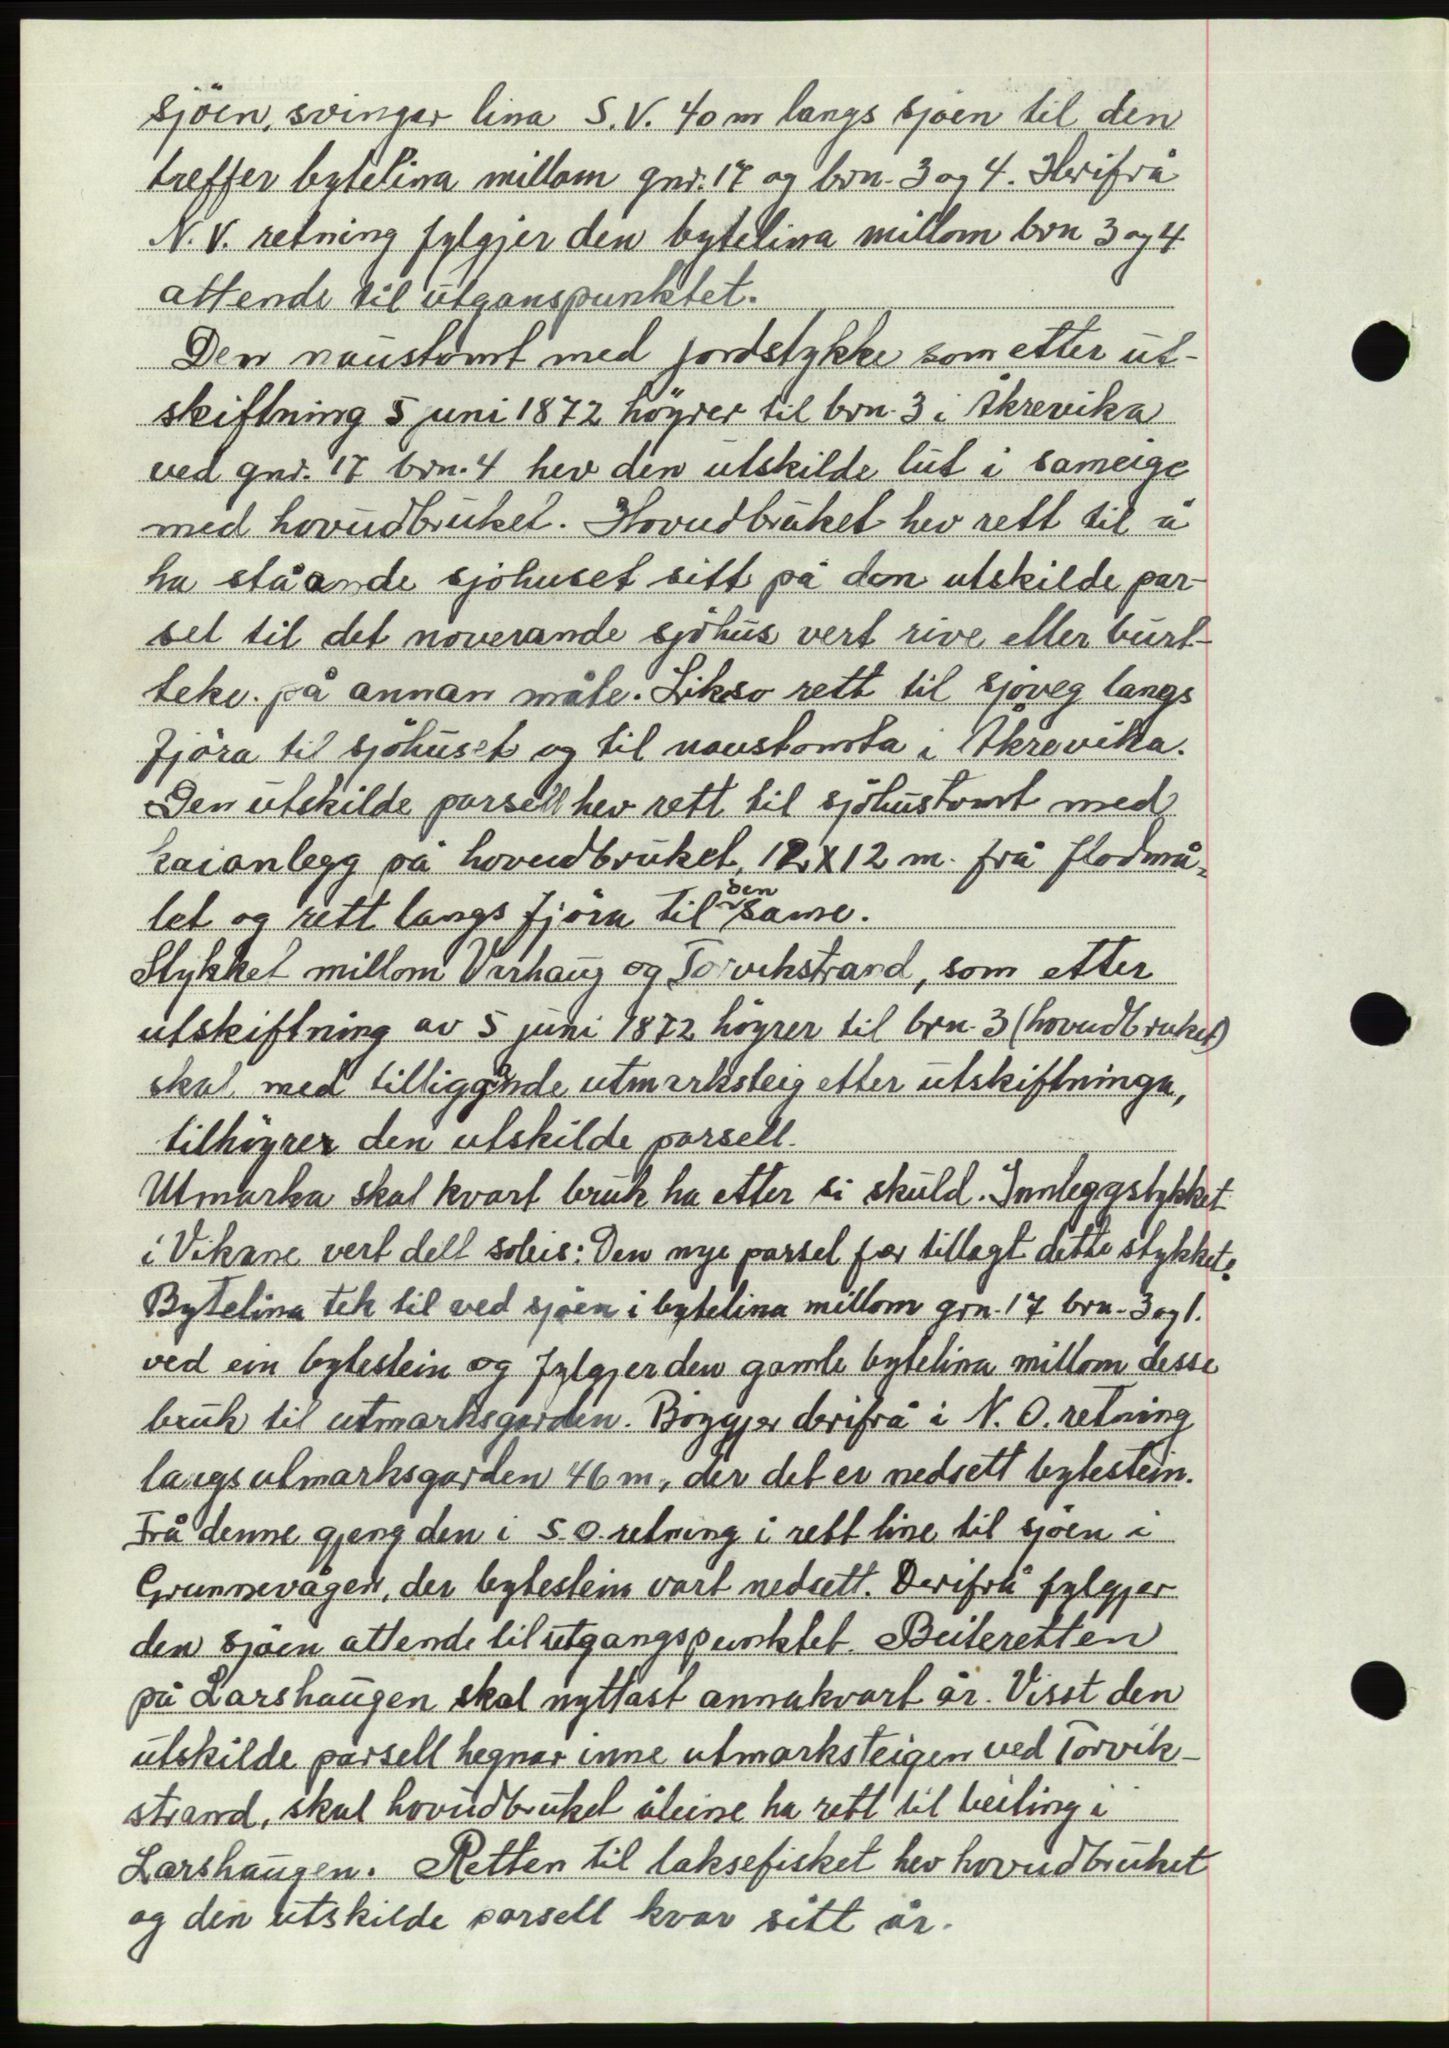 sjöen, svingar lina S.V. 40 m langs sjöen til den
treffer bytelina millom gnr. 17 og brn. 3 og 4. Herifrå
N.V. retning fylgjer den bytelina millom brn 3 og 4
attende til utganspunktet.
Den naustomt med jordstykke som etter ut-
skiftning 5 juni 1872 höyrer til brn. 3 i Åkrevika
ved gnr. 17 brn. 4 hev den utskilde lut i sameige
med hovudbruket. Hovudbruket hev rett til å
ha ståande sjöhuset sitt på den utskilde par-
sel til det noverande sjöhus vert rive eller burt-
teke på annan måte. Likeso rett til sjöveg langs
fjöra til sjöhuset og til naustomta i Åkrevika.
Den utskilde parsell hev rett til sjöhustomt med
kaianlegg på hovudbruket, 12 X 12 m. frå flodmå-
let og rett langs fjöra til den same.
Stykket millom Varhaug og Torvikstrand, som etter
utskiftning av 5 juni 1872 höyrer til brn. 3 (hovudbruket)
skal med tilliggande utmarksteig etter utskiftninga,
tilhöyrer den utskilde parsell.
Utmarka skal kvart bruk ha etter si skuld. Innleggstykket
i Vikane vert delt soleis: Den nye parsel fær tillagt dette stykket:
Bytelina tek til ved sjöen i bytelina millom grn. 17 brn. 3 og 1.
ved ein bytestein og fylgjer den gamle bytelina millom desse
bruk til utmarksgarden. Böygjer derifrå i N.O. retning
langs utmarksgarden 46 m, der det er nedsett bytestein.
Frå denne gjeng den i S.O. retning i rett line til sjöen i
Grunnevågen, der bytestein vart nedsett. Derifrå fylgjer
den sjöen attende til utgangspunktet. Beiteretten
på Larshaugen skal nyttast annakvart år. Visst den
utskilde parsell hegnar inne utmarksteigen ved Torvik-
strand, skal hovudbruket åleine ha rett til beiting i
Larshaugen. Retten til laksefisket hev hovudbruket
og den utskilde parsell kvar sitt år.